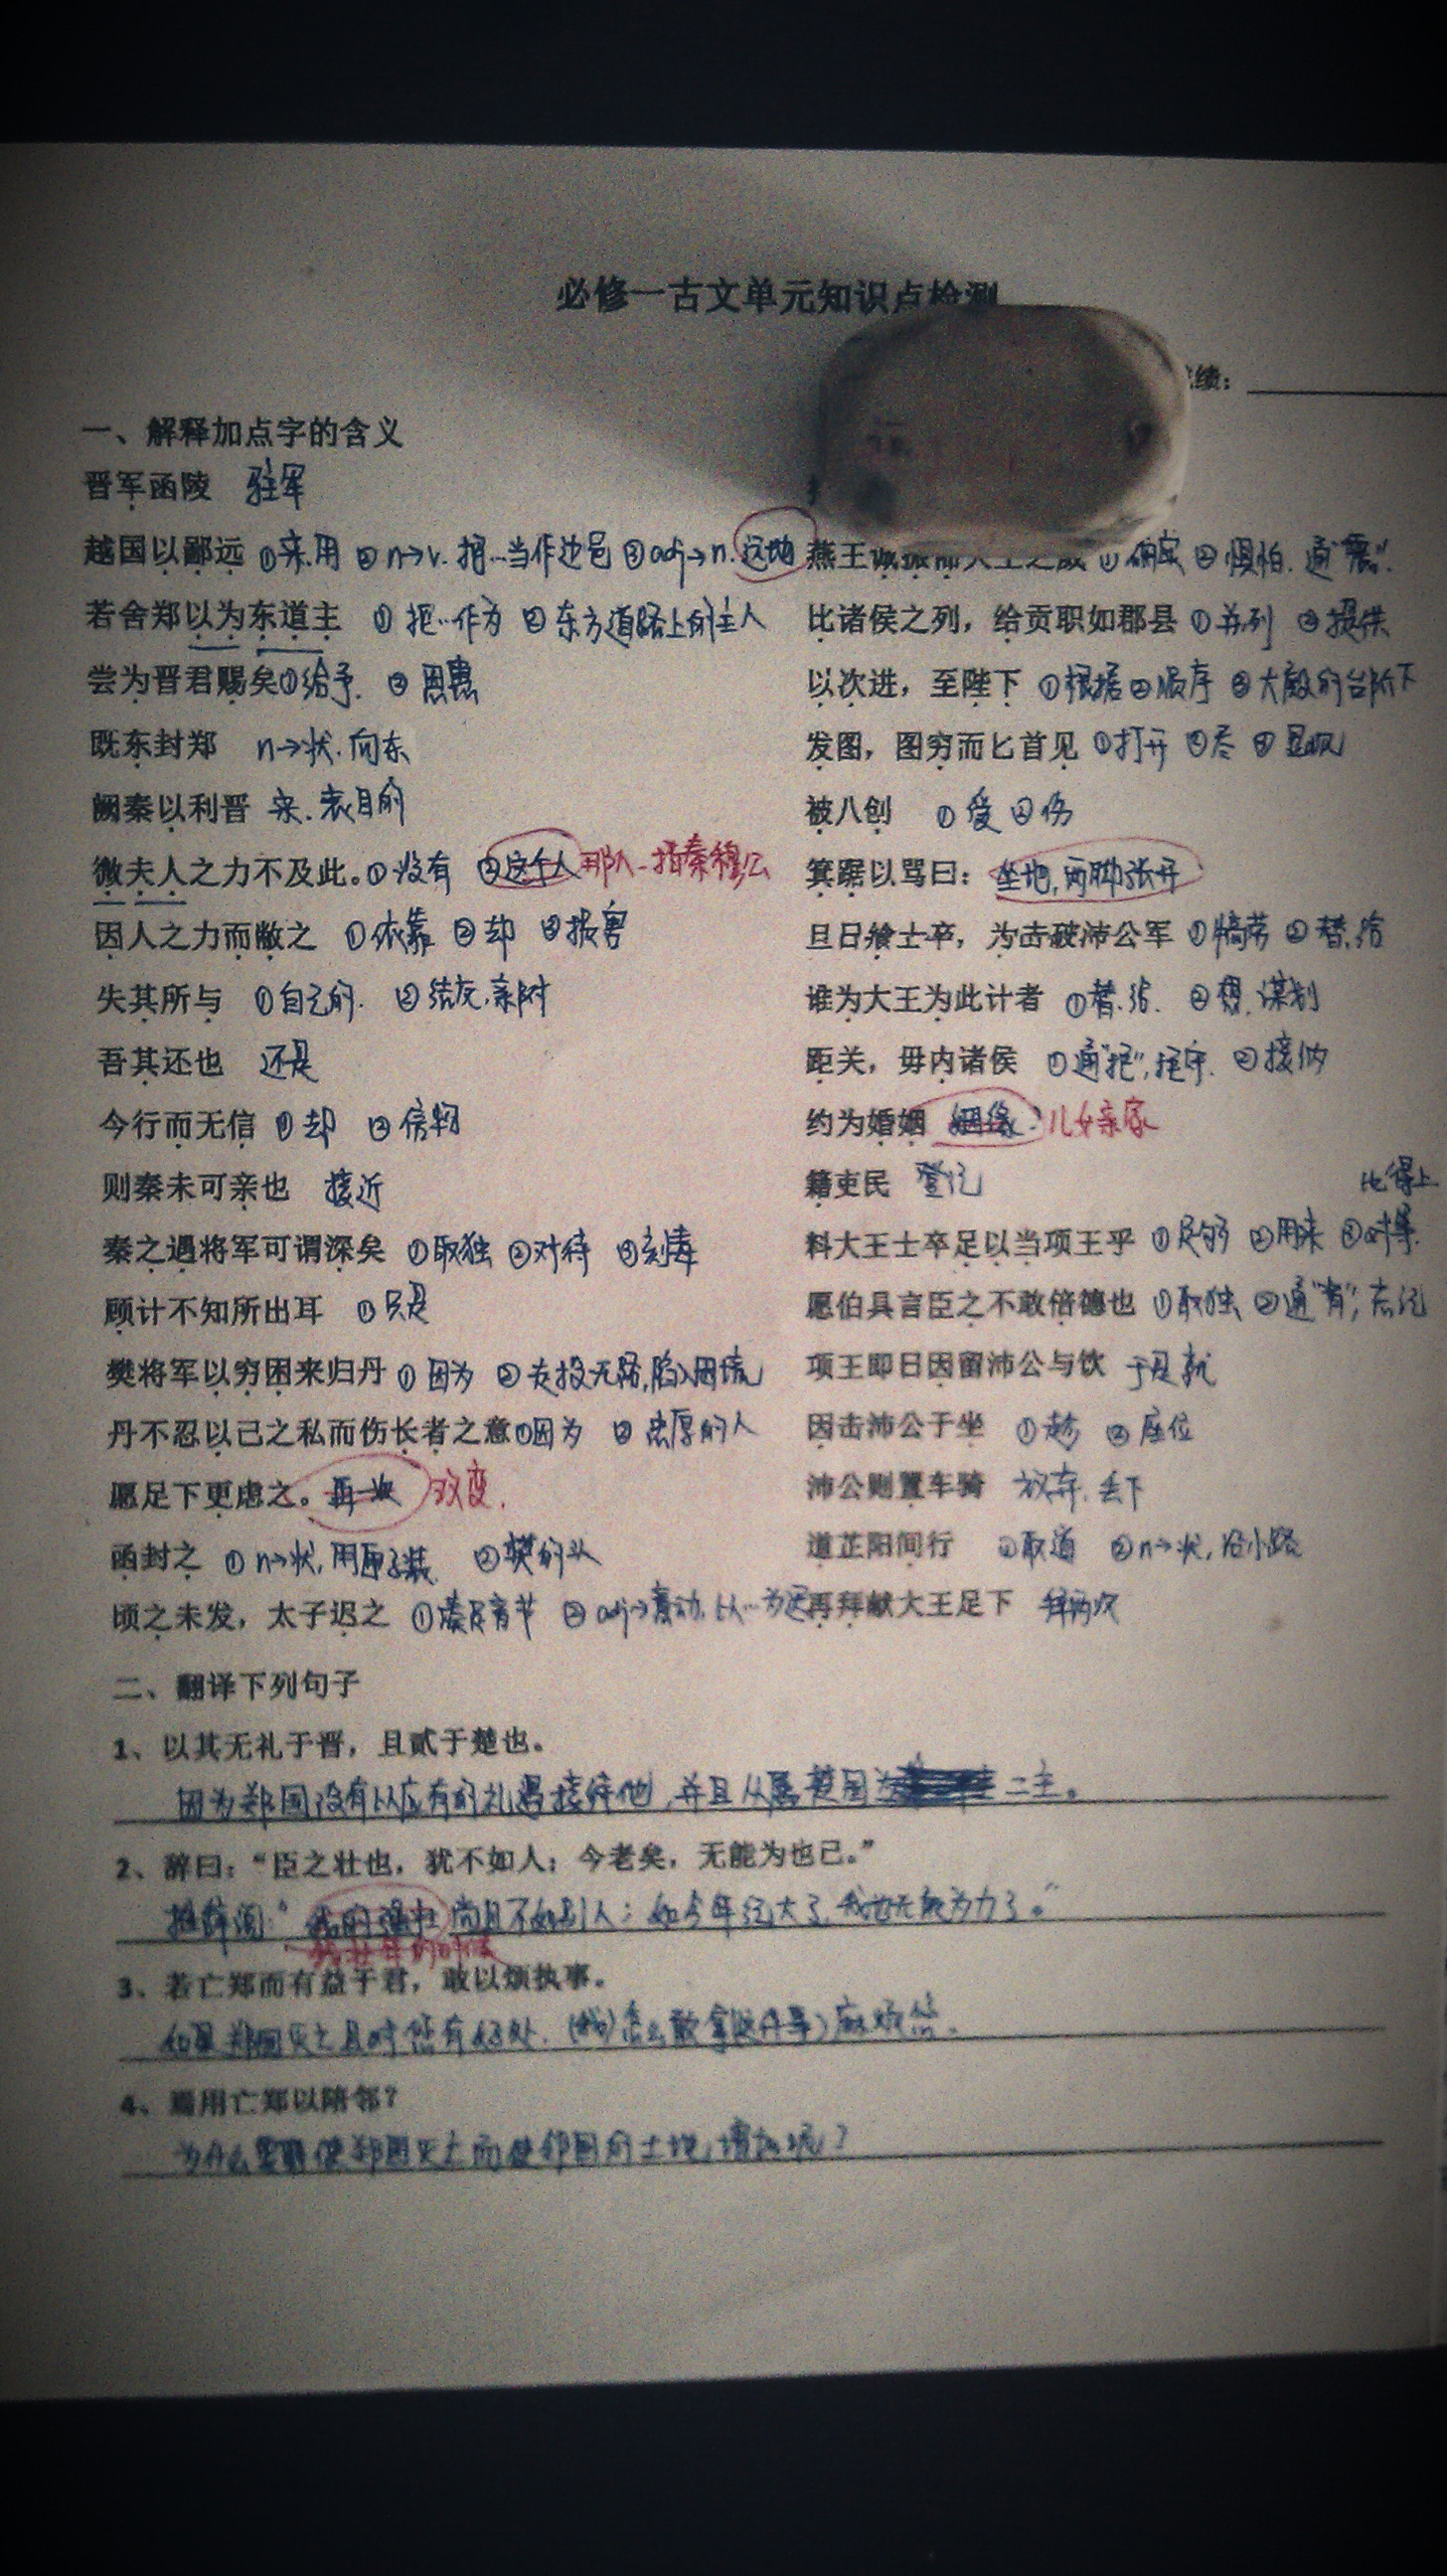 必修一古文单元知识点检测
绩:
一、解释加点字的含义
晋军函陵 驻军
越国以鄙远 ①来.用 ②n→v.把…当作边邑 ③adj→n.远地
若舍郑以为东道主 ① 把…作为 ② 东方道路上的主人
尝为晋君赐矣①给予. ② 恩惠
既东封郑 n→状.向东
阙秦以利晋 来.表目的
微夫人之力不及此。①没有 ②这个人 那人-指秦穆公
因人之力而敝之 ①依靠 ②却 ③损害
失其所与 ①自己的. ②结友,亲附
吾其还也 还是
今行而无信 ①却 ②信物
则秦未可亲也 接近
秦之遇将军可谓深矣 ①取独 ②对待 ③刻毒
顾计不知所出耳 ①只是
樊将军以穷困来归丹 ①因为 ②走投无路,陷入困境
丹不忍以己之私而伤长者之意①因为 ② 忠厚的人
愿足下更虑之。再一次 改变.
函封之 ①n→状,用匣子装 ②樊的头
顷之未发,太子迟之 ①凑足音节 ②adj→意动.以…为迟
燕王诚振怖大王之威 ①确实 ②惧怕.通“震”.
比诸侯之列,给贡职如郡县 ①并列 ②提供
以次进,至陛下 ①根据②顺序 ③大殿的台阶下
发图,图穷而匕首见 ①打开 ②尽 ③显现
被八创 ①受②伤
箕踞以骂曰: 坐地,两脚张开
旦日飨士卒,为击破沛公军 ①犒劳 ②替.给
谁为大王为此计者 ①替.给. ②想.谋划
距关,毋内诸侯 ①通“拒”,拒守. ②接纳
约为婚姻 姻缘. 儿女亲家
籍吏民 登记
料大王士卒足以当项王乎 ①足够 ②用来 ③对等. 比得上
愿伯具言臣之不敢倍德也 ①取独 ②通“背”,忘记
项王即日因留沛公与饮 于是就
因击沛公于坐 ①趁 ②座位
沛公则置车骑 放弃.丢下
道芷阳间行 ①取道 ②n→状,沿小路
再拜献大王足下 拜两次
二、翻译下列句子
1、以其无礼于晋,且贰于楚也。
因为郑国没有以应有的礼遇接待他,并且从属楚国为二主。
2、辞曰:“臣之壮也,犹不如人;今老矣,无能为也已。”
推辞道:“我的强壮尚且不如别人;如今年纪大了,我也无能为力了。”
我壮年的时候
3、若亡郑而有益于君,敢以烦执事。
如果郑国灭亡且对您有好处.(我)怎么敢拿(这件事)麻烦您.
4、焉用亡郑以陪邻?
为什么要使郑国灭亡而使邻国的土地增加呢?